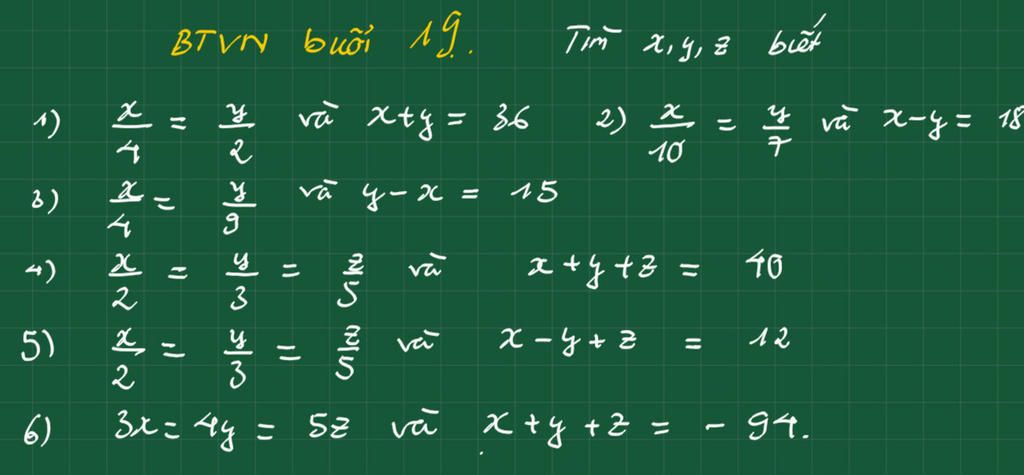 BTVN buổi 19. Tìm x, y, z biết
1) x/4 = y/2 và x+y = 36 2) x/10 = y/7 và x-y = 18
3) x/4 = y/9 và y-x = 15
4) x/2 = y/3 = z/5 và x+y+z = 40
5) x/2 = y/3 = z/5 và x-y+z = 12
6) 3x = 4y = 5z và x+y+z = -94.